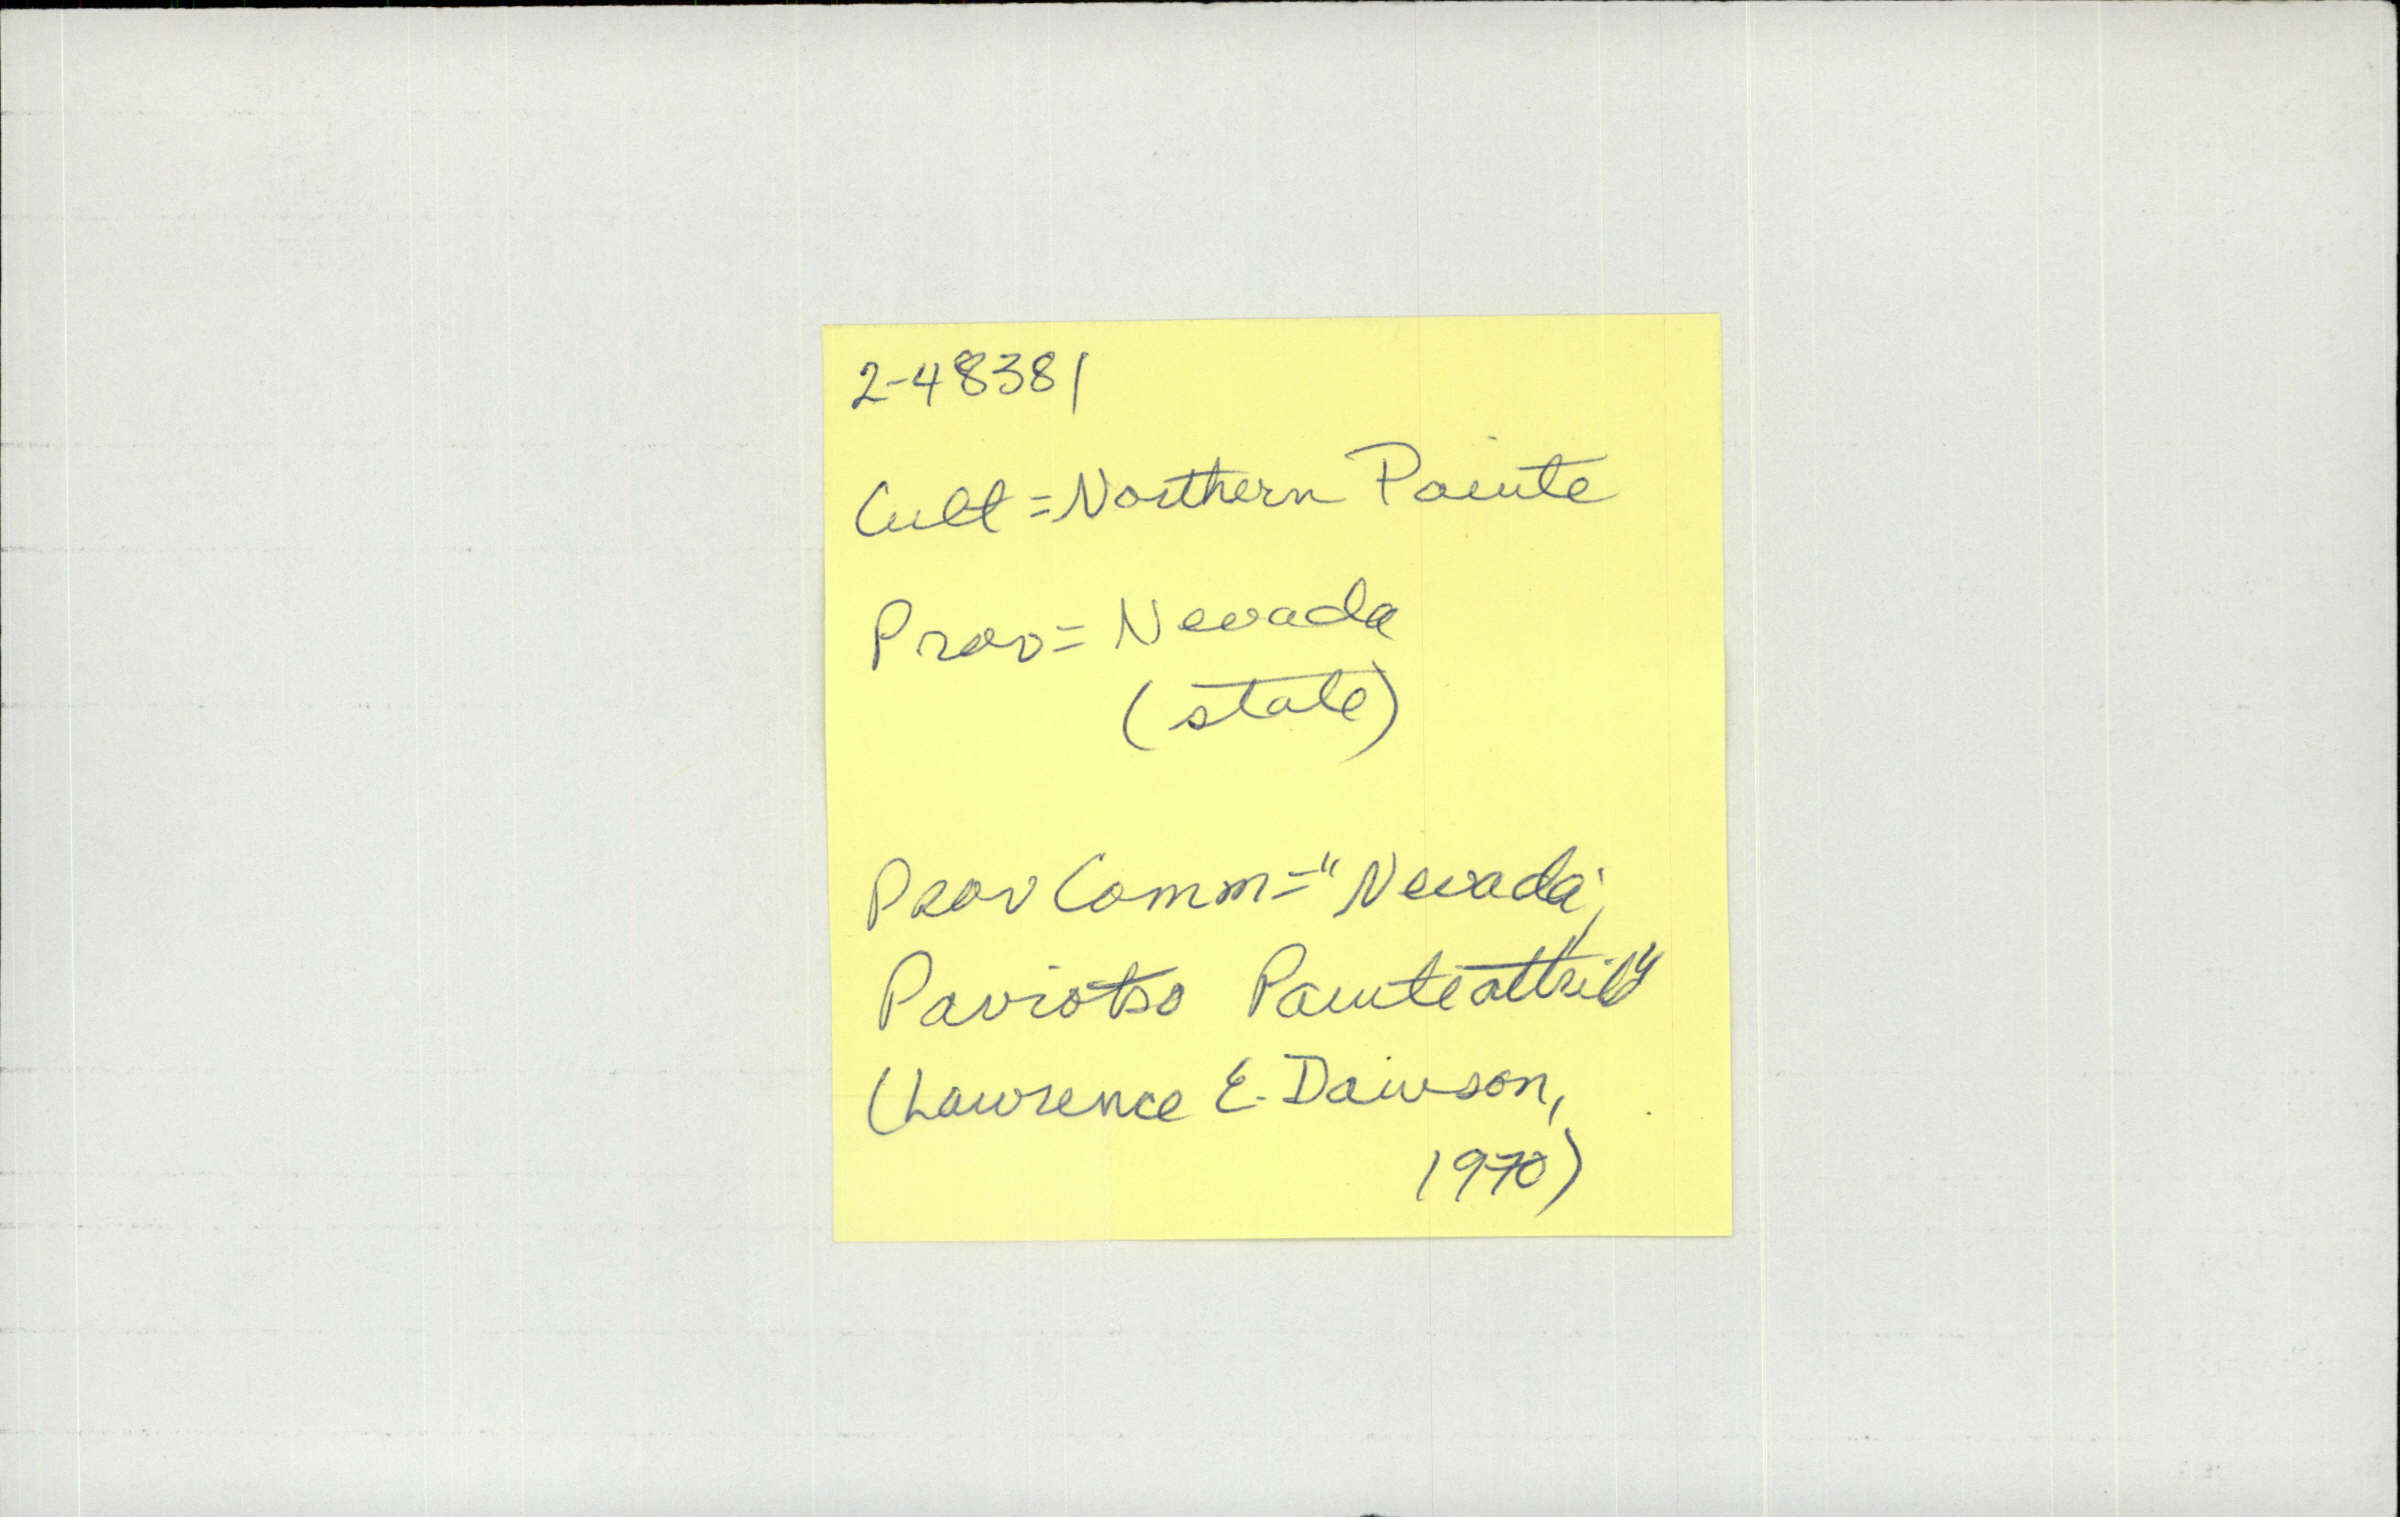 2-48381
Cult = Northern Paiute
Prov = Nevada
(state)
Prov Comm = "Nevada;
Paviotso Paiute attrib"
(Lawrence E. Dawson,
1970)